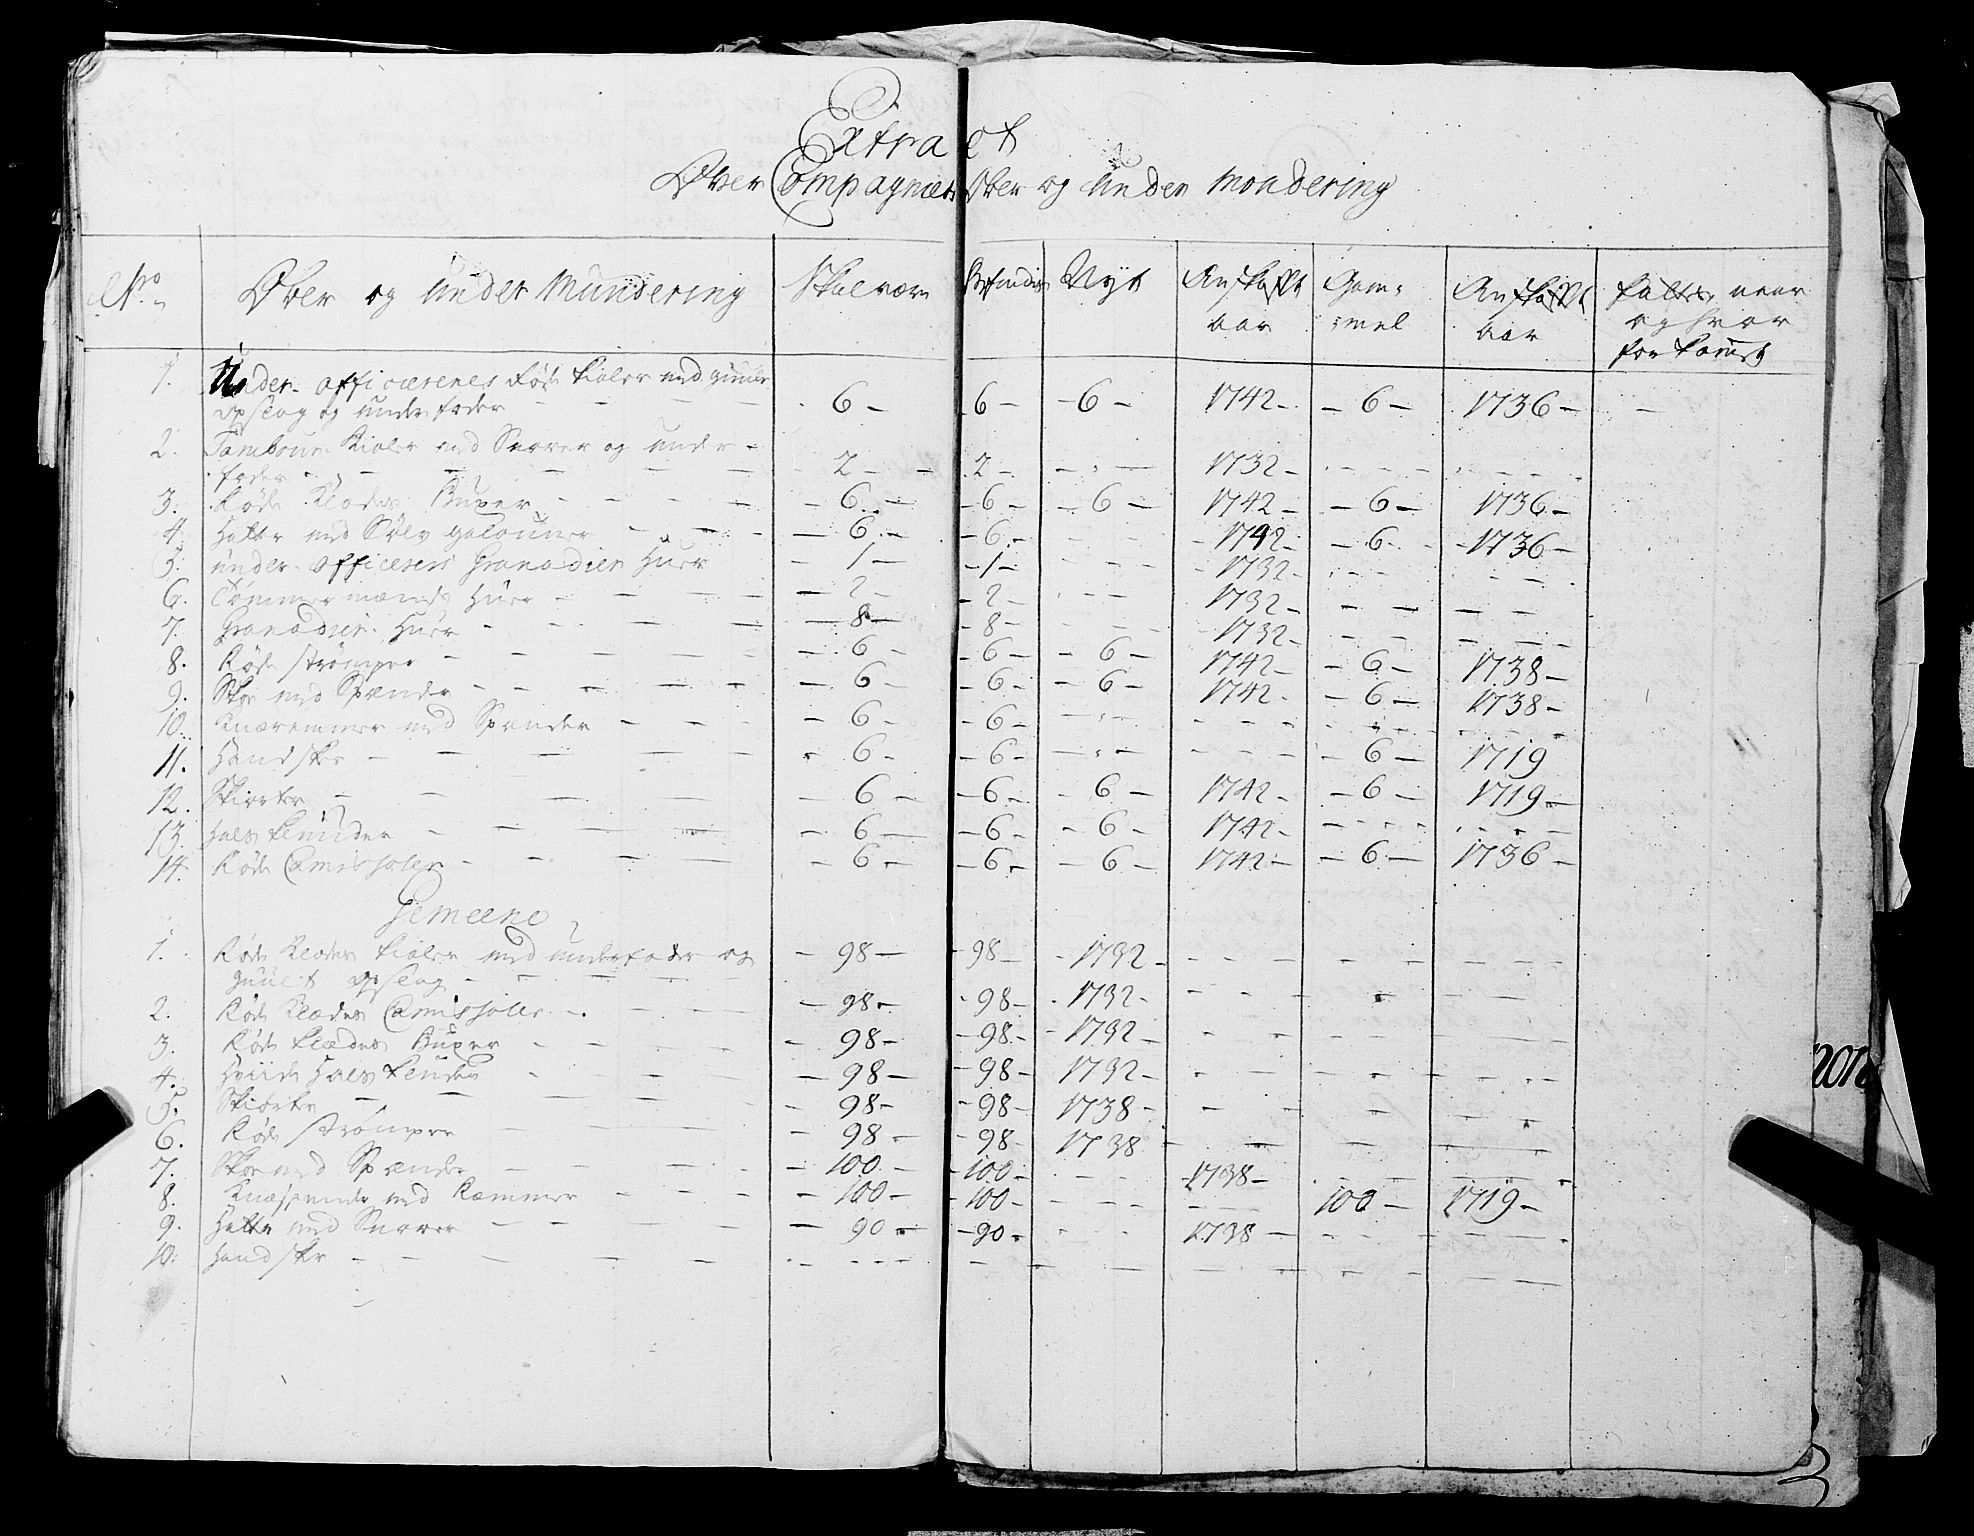 Extract
Over Compagniets Over og Under Mondering
No Over og Under Mundering Skal være Befindes Nyt Anskafft aar Gam: :mel Anskafft aar naar og hvor for komet
1. Under officerernes Røde Kioler med guule
opslag og underfoder 6 6 6 1742 6 1736
2. Tambour Kioler med Snorer og under
foder 2 2 1732
3. Røde Klædes Buxer 6 6 6 1742 6 1736
4. Hatte med Sølv galouner 6 6 1742 6 1736
5. under officerers Granadier Huer 1 1 1732
6. Tømmermænds Huer 2 2 1732
7. Granadier Huer 8 8 1732
8. Røde strømper 6 6 6 1742 6 1738
9. Skoe med Spænder 6 6 6 1742 6 1738
10. Knæremmer med Spænder 6 6
11. Handsker 6 6 6 1719
12. Skiorter 6 6 6 1742 6 1719
13. Hals Kluder 6 6 6 1742
14. Røde Camisoler 6 6 6 1742 6 1736
Gemeene
1. Røde Klædes Kioler med underfoder og 98 98 1732
guult opslag
2. Røde Klædes Camisoler 98 98 1732
3. Røde Klædes Buxer 98 98 1732
4. Hviide Hals Kluder 98 98 1732
5. Skiorter 98 98 1738
6. Røde strømper 98 98 1738
7. Skoe med Spænder 100 100 1738
8. Knæspænder med Remmer 100 100 100 1719
9. Hatte med Snorer 90 90 1738
10. Handsker